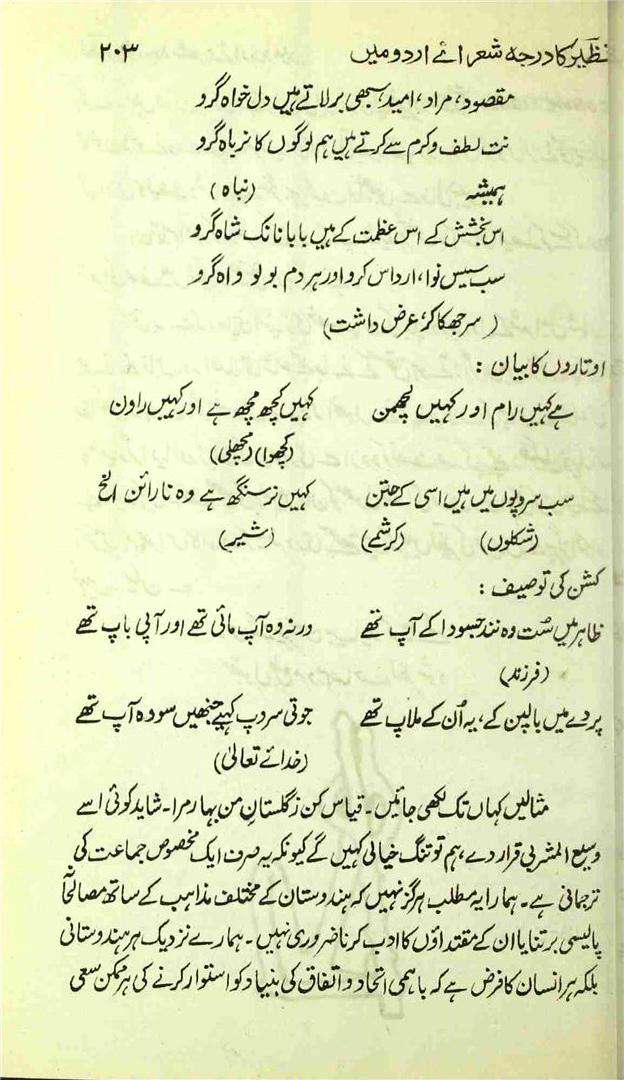 نظیر کا درجہ شعرائے اردو میں ۲۰۳
مقصود، مراد، امید، سبھی بر لاتے ہیں دل خواہ گرو
نت لطف و کرم سے کرتے ہیں ہم لوگوں کا نرباہ گرو
ہمیشہ (نباہ)
اس بخشش کے اس عظمت کے ہیں بابا نانک شاہ گرو
سب سیس نوا، ارداس کرو اور ہر دم بولو واہ گرو
(سر جھکا کر، عرض داشت)
اوتاروں کا بیان :
ہے کہیں رام اور کہیں لچھمن کہیں کچھ مچھ ہے اور کہیں راون
(کچھوا) (مچھلی)
سب سروپوں میں ہیں اسی کے جتن کہیں نرسنگھ ہے وہ نارائن الخ
(شکلوں) (کرشمے) (شیر)
کشن کی توصیف :
ظاہر میں سُت وہ نند جسودا کے آپ تھے ورنہ وہ آپ مائی تھے اور آپی باپ تھے
(فرزند)
پردے میں بالپن کے، یہ اُن کے ملاپ تھے جوتی سروپ کہیے جنھیں سو وہ آپ تھے
(خدائے تعالیٰ)
مثالیں کہاں تک لکھی جائیں۔ قیاس کن ز گلستانِ من بہار مرا۔ شاید کوئی اسے
وسیع المشربی قرار دے، ہم تو تنگ خیالی کہیں گے کیونکہ یہ صرف ایک مخصوص جماعت کی
ترجمانی ہے۔ ہمارا یہ مطلب ہرگز نہیں کہ ہندوستان کے مختلف مذاہب کے ساتھ مصالحانہ
پالیسی برتنا یا ان کے مقتداؤں کا ادب کرنا ضروری نہیں۔ ہمارے نزدیک ہر ہندوستانی
بلکہ ہر انسان کا فرض ہے کہ باہمی اتحاد و اتفاق کی بنیاد کو استوار کرنے کی ہر ممکن سعی